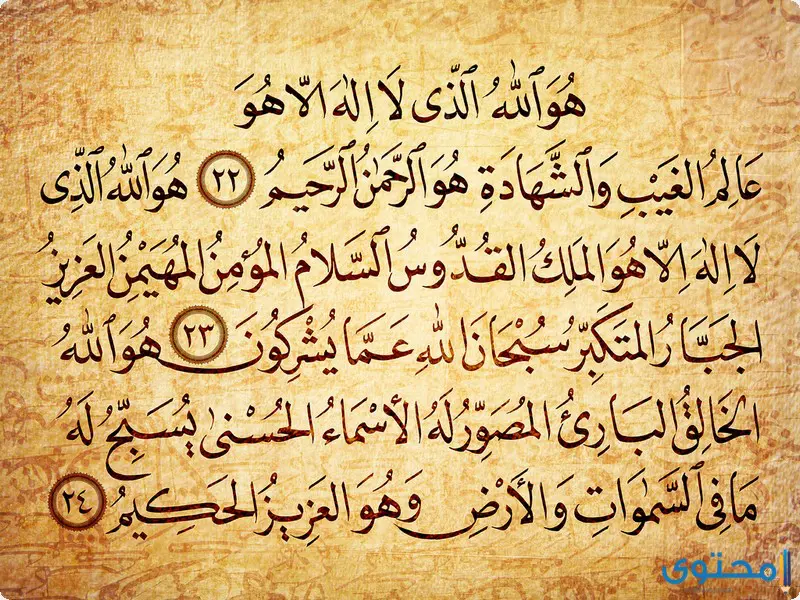 هُوَ ٱللَّهُ ٱلَّذِى لَا اِلٰهَ اِلَّا هُوَ
عَالِمُ الْغَيْبِ وَٱلشَّهَادَةِ هُوَ ٱلرَّحْمٰنُ ٱلرَّحِيمُ ٢٢ هُوَ ٱللَّهُ ٱلَّذِى
لَا اِلٰهَ اِلَّا هُوَ الْمَلِكُ الْقُدُّوسُ ٱلسَّلَامُ الْمُؤْمِنُ الْمُهَيْمِنُ الْعَزِيزُ
الْجَبَّارُ الْمُتَكَبِّرُ سُبْحَانَ اللّٰهِ عَمَّا يُشْرِكُونَ ٢٣ هُوَ ٱللّٰهُ
الْخَالِقُ الْبَارِئُ الْمُصَوِّرُ لَهُ الْأَسْمَاءُ الْحُسْنىٰ يُسَبِّحُ لَهُ
مَا فِى ٱلسَّمٰوَاتِ وَالْأَرْضِ وَهُوَ الْعَزِيزُ الْحَكِيمُ ٢٤
محتوى